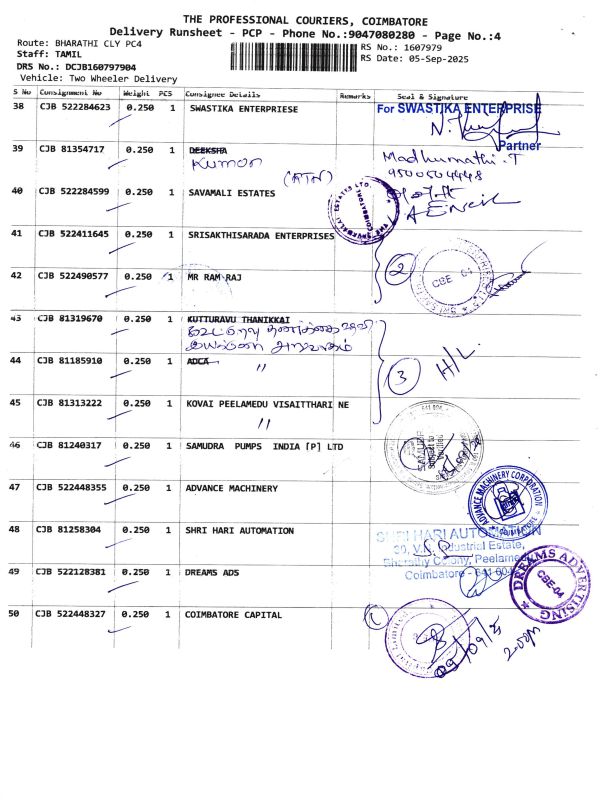 THE PROFESSIONAL COURIERS, COIMBATORE
Delivery Runsheet - PCP - Phone No.:9047080280 - Page No.:4
Route: BHARATHI CLY PC4
RS No.: 1607979
Staff: TAMIL
RS Date: 05-Sep-2025
DRS No.: DCJB160797904
Vehicle: Two Wheeler Delivery
S No Consignment No Weight PCS Consignee Details Remarks Seal & Signature
38 CJB 522284623 0.250 1 SWASTIKA ENTERPRIESE
For SWASTIKA ENTERPRISE
Partner
39 CJB 81354717 0.250 1 DEEKSHA
Kumar
(ATN)
Madhumathi.T
9500504448
40 CJB 522284599 0.250 1 SAVAMALI ESTATES
41 CJB 522411645 0.250 1 SRISAKTHISARADA ENTERPRISES
2
CBE-04
42 CJB 522490577 1 MR RAM RAJ
43 CJB 81319670 0.250 1 KUTTURAVU THANIKKAI
44 CJB 81185910 0.250 1 ADCA
"
3 H/L
45 CJB 81313222 0.250 1 KOVAI PEELAMEDU VISAITTHARI NE
"
46 CJB 81240317 0.250 1 SAMUDRA PUMPS INDIA [P] LTD
47 CJB 522448355 0.250 1 ADVANCE MACHINERY
ADVANCE MACHINERY CORPORATION
COIMBATORE
48 CJB 81258304 0.250 1 SHRI HARI AUTOMATION
SHRI HARI AUTOMATION
Industrial Estate,
Bharathy Colony, Peelamedu
Coimbatore - 641 004
49 CJB 522128381 0.250 1 DREAMS ADS
DREAMS ADVERTISING
CBE-04
50 CJB 522448327 0.250 1 COIMBATORE CAPITAL
05/09/25
2.00pm